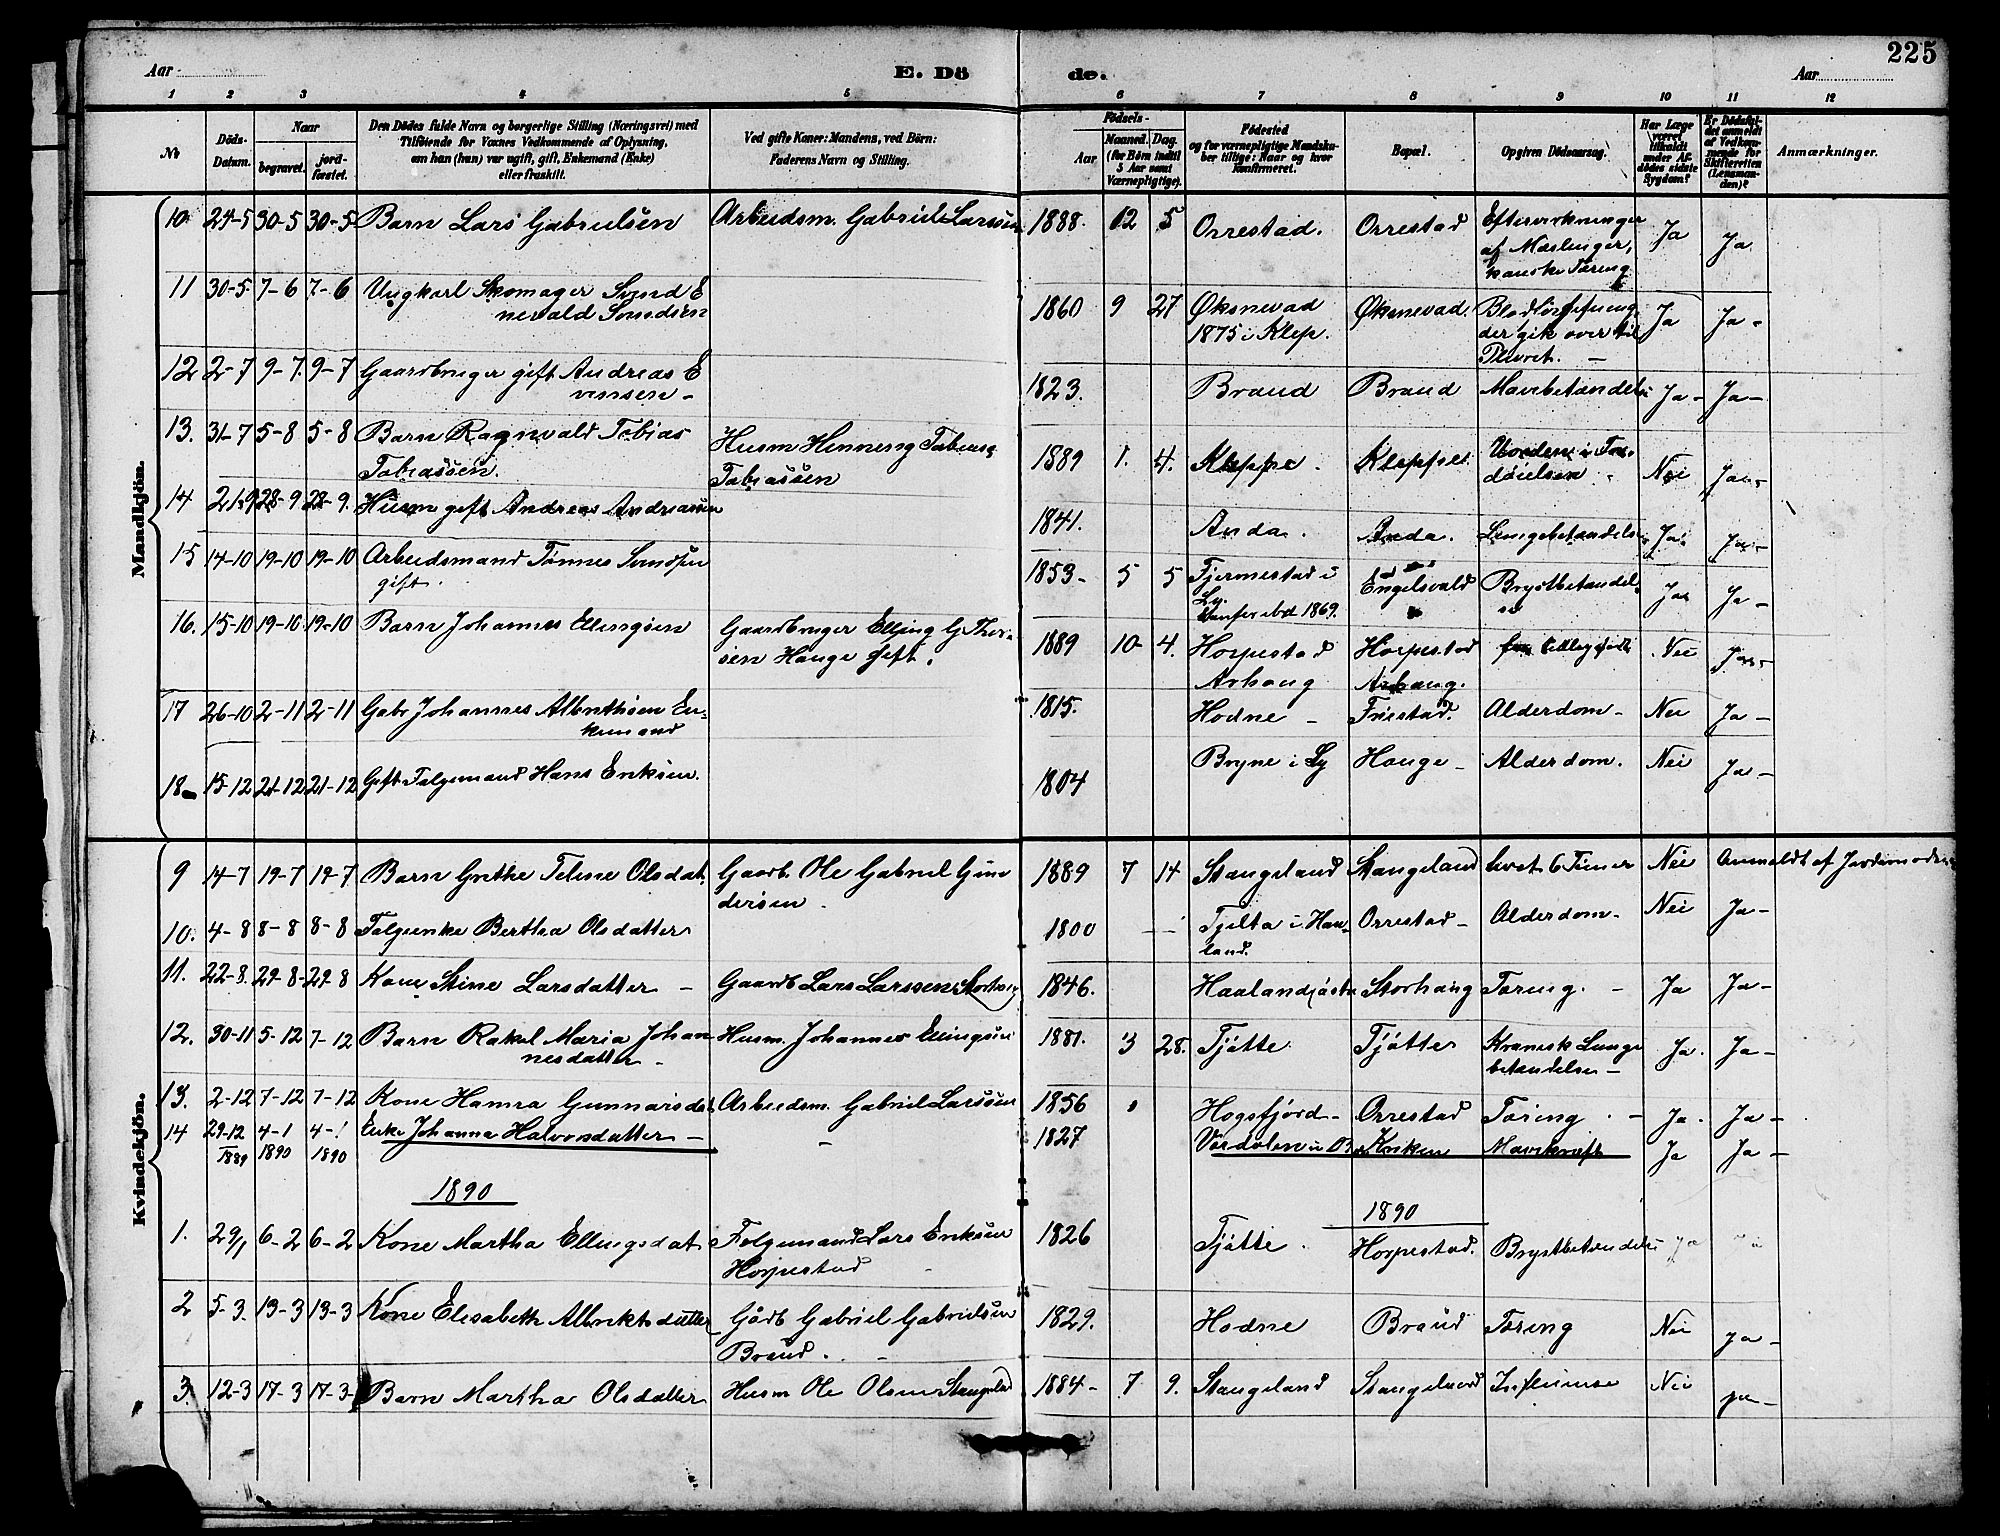 225
Aar
E. Dö
de.
Aar
1 2 3 4 5 6 7 8 9 10 11 12
№
Döds-
Datum.
Naar
begravet.
jord-
fæstet.
Den Dödes fulde Navn og borgerlige Stilling (Næringsvei) med
Tilföiende for Voxnes Vedkommende af Oplysning,
om han (hun) var ugift, gift, Enkemand (Enke)
eller fraskilt.
Ved gifte Koner: Mandens, ved Börn:
Faderens Navn og Stilling.
Födsels-
Aar
Maaned. Dag.
(for Börn indtil
5 Aar samt
Værnepligtige).
Födested
og for værnepligtige Mandska-
ber tillige: Naar og hvor
Konfirmeret.
Bopæl.
Opgiven Dödsaarsag.
Har Læge
været
tilkaldt
under Af-
dödes sidste
Sygdom?
Er Dödsfal-
det anmeldt
af Vedkom-
mende for
Skifteretten
(Lensman-
den)?
Anmærkninger.
Mandkjön.
10. 24-5 30-5 30-5 Barn Lars Gabrielsen Arbeidsm. Gabriel Larssen 1888. 12 5 Orrestad. Orrestad Eftervirkninger Ja Ja
af Mæslinger,
kanske Tæring
11 30-5 7-6 7-6 Ungkarl Skomager Svend E
nevald Svendsen 1860 9 27 Øksnevad Øksnevad. Ja Ja-
1875 i Klep. der gik over til
Pleurit.-
12 2-7 9-7. 9-7 Gaardbruger gift Andreas E
vensen- 1823. Braud Braud Mavebetændelse Ja- Ja-
13. 31-7 5-8 5-8 Barn Ragnvald Tobias Husm Henneng Tobias
Tobiassen. Tobiassen 1889 1. 4. Kleppe. Kleppe Nei Ja-
14 21-9 28-9 28-9. Husm gift Andreas Andreassen 1841. Anda. Anda. Lungebetændelse Ja Ja-
15 14-10 19-10 19-10 Arbeidsmand Tønnes Svendsen
gift. 1853- 5 5 Fjermestad i Engelsvold Brystbetændel Ja Ja-
Ly. se
Konfer ibd 1869.
16. 15-10 19-10 19-10 Barn Johannes Ellingsen Gaardbruger Elling G Thor-
sen Hauge gift. 1889 10 4. Horpestad Horpestad Nei Ja-
Arhaug Arhaug.
17 26-10 2-11 2-11 Gabr Johannes Albrethsen En-
kemand 1815. Hodne- Friestad. Alderdom- Nei Ja-
18- 15-12 21-12 21-12 Gift Folgemand Hans Eriksen. 1804 Bryne i Ly Hauge- Alderdom. Nei Ja-
Kvindekjön.
9 14-7 19-7 19-7 Barn Grethe Teline Olsdat. Gaardb. Ole Gabriel Gun
dersen. 1889 7 14 Stangeland Stangeland levet 6 Timer Nei Anmeldt af Jordemoderen
10. 4-8 8-8 8-8 Folgeenke Bertha Olsdatter 1800 Tjelta i Haa- Orrestad- Alderdom- Nei Ja-
land.
11. 22-8. 29-8- 29-8 Kone Stine Larsdatter - Gaardb Lars Larssen Storhaug 1846. Haaland Storhaug Tæring.- Ja Ja-
12. 30-11 5-12 7-12 Barn Rakel Maria Johan Husm. Johannes Ellingsen
nesdatter- 1881. 3 28. Tjötte Tjötte Kronisk Lunge Ja. Ja-
betændelse-
13. 2-12 7-12 7-12 Kone Hanna Gunnarsdat. Arbeidsm. Gabriel Larssen 1856 Høgsfjord- Orrestad Tæring.- Ja. Ja-
14 29-12 4-1 4-1 Enke Johanna Halvorsdatter- - 1827 Kriken Mavekræft Ja Ja-
1889 1890 1890
1890 1890
1. 29/1 6-2 6-2 Kone Martha Ellingsdat Folgemand Lars Eriksen 1826 Tjötte. Horpestad. Brystbetændelse Ja
Horpestad
2 5-3. 13-3 13-3 Kone Elisabeth Albrektsdatter Gårdb Gabriel Gabrielsen 1829. Hodne Braud Tæring Nei Ja-
Braud.-
3. 12-3 17-3 17-3- Barn Martha Olsdatter Husm Ole Olsen Stangeland 1884- 7 9. Stangeland Stangeland Influense Nei Ja-